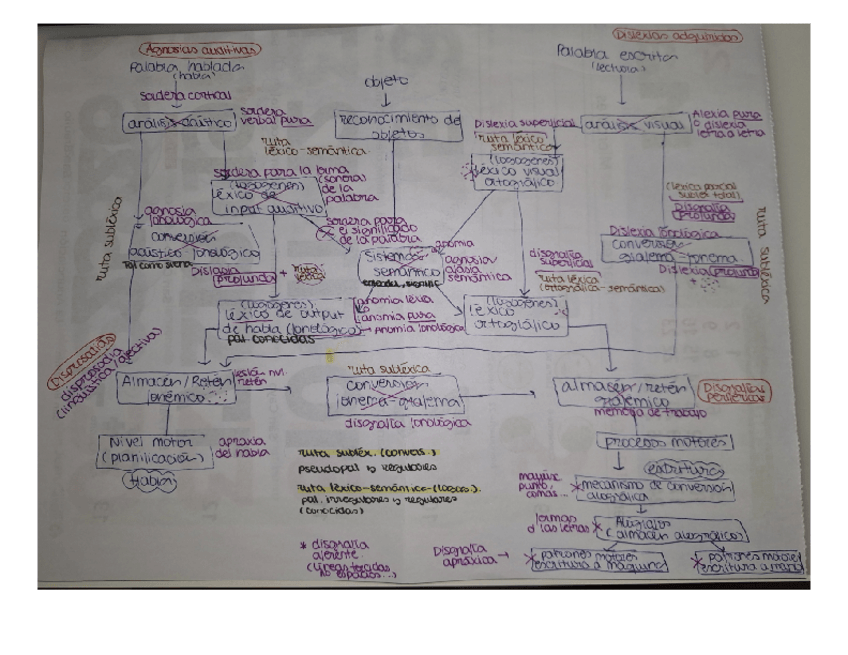 Agnosias auditivas
Palabra hablada
(habla)
sordera cortical
análisis acústico
sordera
verbal pura
ruta
léxico-semántica
objeto
reconocimiento de
objetos
Dislexias adquiridas
Palabra escrita
(lectura)
Dislexia superficial
análisis visual
Alexia pura
o dislexia
letra a letra
ruta léxico
semántica
(logogenes)
léxico visual
ortográfico
sordera para la forma
(sonora)
de la
palabra
(logogenes)
léxico de
input auditivo
sordera para
el significado
de la palabra
ruta subléxico
agnosia
fonológica
conversión
acústico fonológico
tal como suena
Disfasia
profunda
+ ruta
léxica
anomia
Sistema
semántico
agnosia
afasia
semántica
disgrafia
superficial
ruta léxica
(ortográfica-semántica)
Disgrafia
profunda
Dislexia fonológica
conversión
grafema-fonema
Dislexia profunda
ruta subléxico
(logogenes)
léxico de output
de habla (fonológico)
pal conocidas
anomia pura
→ Anomia fonológica
(logogenes)
léxico
ortográfico
Disprosodias
disprosodia
(lingüística/afectivas)
Almacén/Retén
fonémico
ruta subléxica
conversión
fonema-grafema
disgrafia fonológica
almacén/retén
grafémico
memoria de trabajo
Disgrafias
periféricas
Nivel motor
(planificación)
apraxia
del habla
Habla
ruta subléx. (convers.)
pseudopal y regulares
ruta léxico-semántica (logog.)
pal. irregulares y regulares
(conocidas)
procesos motores
escritura
mayúsc
punto,
comas...
* mecanismo de conversión
alográfica
formas
d las letras
* Alógrafos
(almacén alográfico)
* disgrafia
aferente
(líneas torcidas
no espacios...)
Disgrafia
apráxica →
* patrones motores
escritura a máquina
* patrones motores
escritura a mano